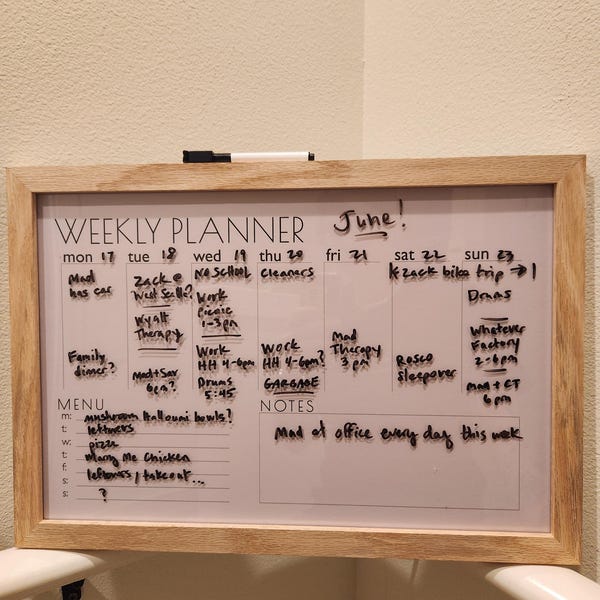 WEEKLY PLANNER
June!
mon 17
tue 18
wed 19
thu 20
fri 21
sat 22
sun 23
Mad
has car
Family
dinner?
Zack @
West Seattle?
Wyatt
Therapy
Mad+Sav
6pm?
NO SCHOOL
Work
Picnic
1-3pm
Work
HH 4-6pm
Drums
5:45
Cleaners
Work
HH 4-6pm?
GARBAGE
Mad
Therapy
3pm
Zack bike trip →|
Rosco
Sleepover
Drums
Whatever
Factory
2-6pm
Mad + CT
6pm
MENU
m: mushroom Halloumi bowls?
t: leftovers
w: pizza
t: Marry Me Chicken
f: leftovers / takeout...
s: ?
s:
NOTES
Mad at office every day this week